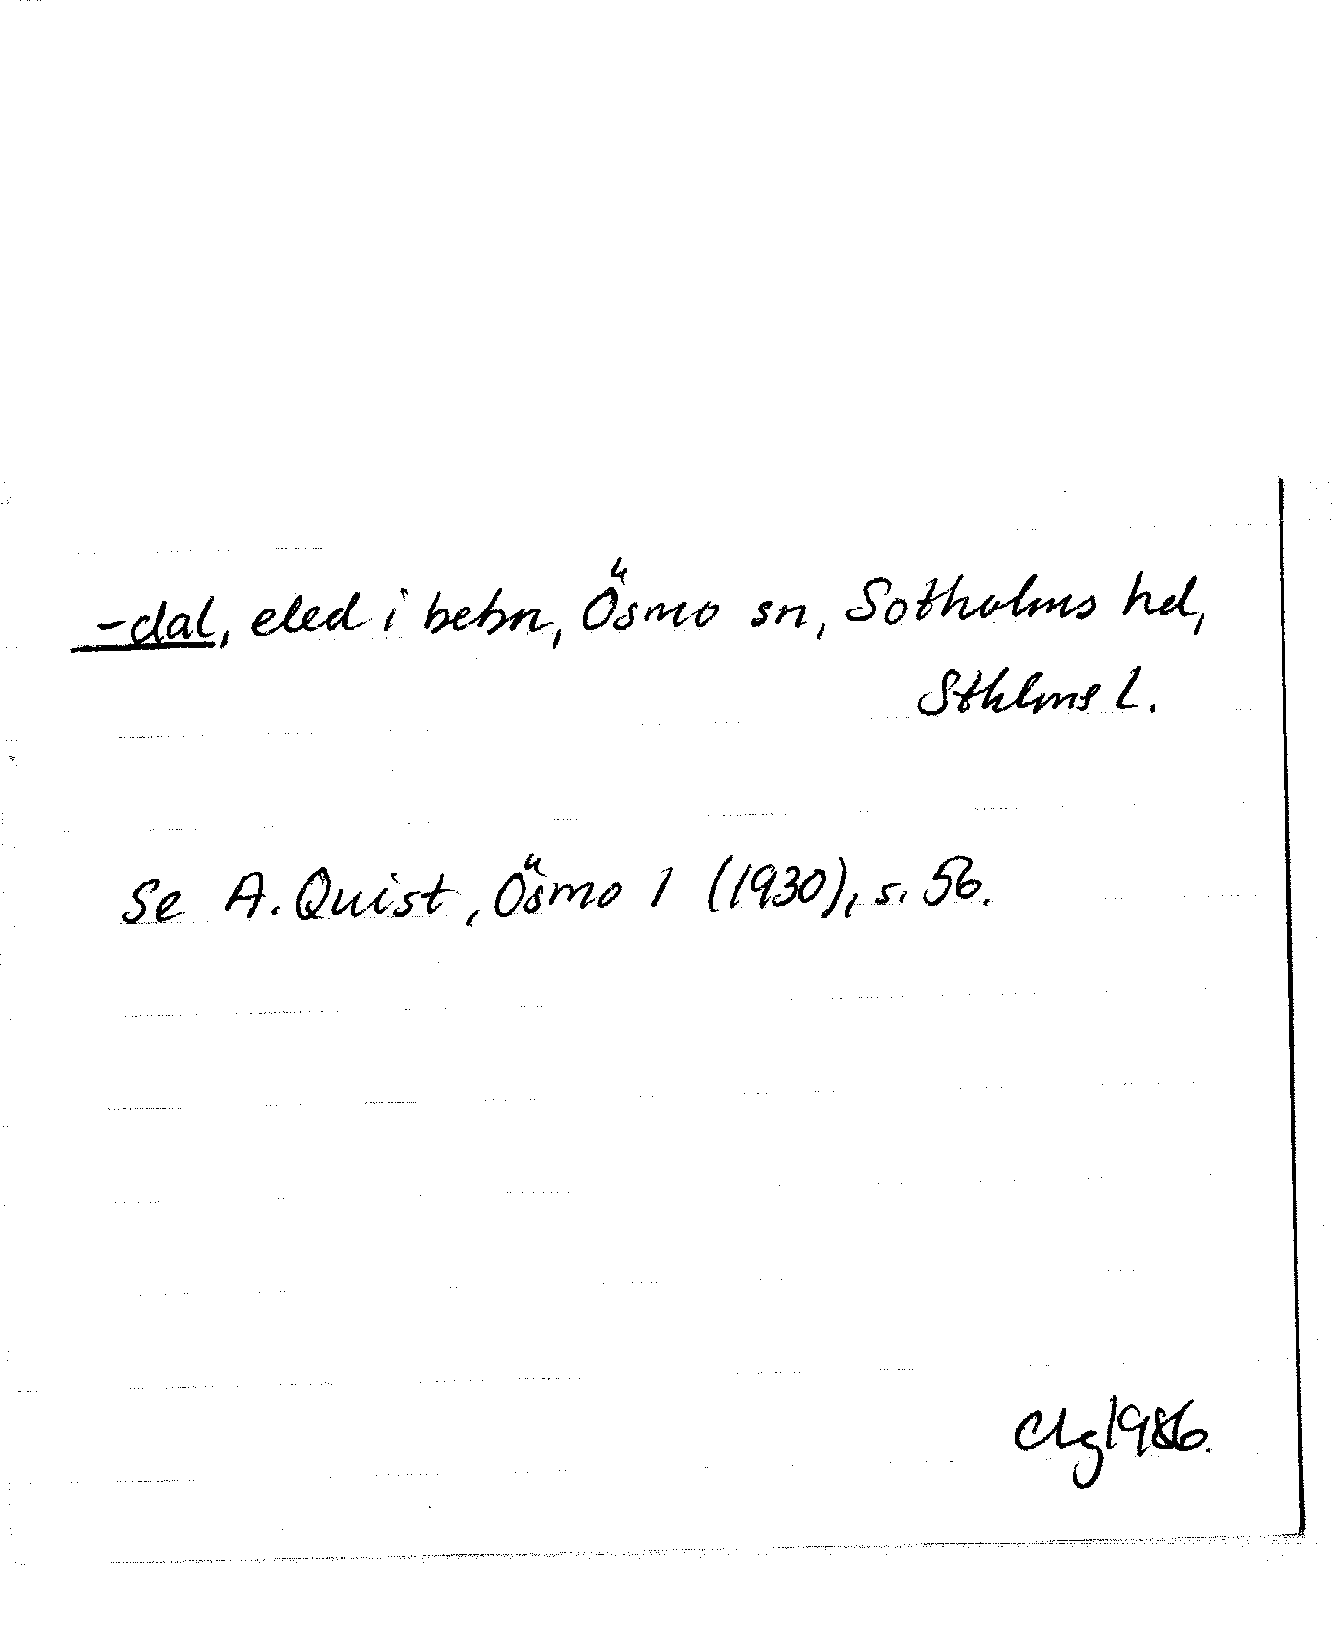 -dal, eled i bebn, Ösmo sn, Sotholms hd,
Sthlms l.
Se A. Quist, Ösmo 1 (1930), s. 56.
Clg 1986.